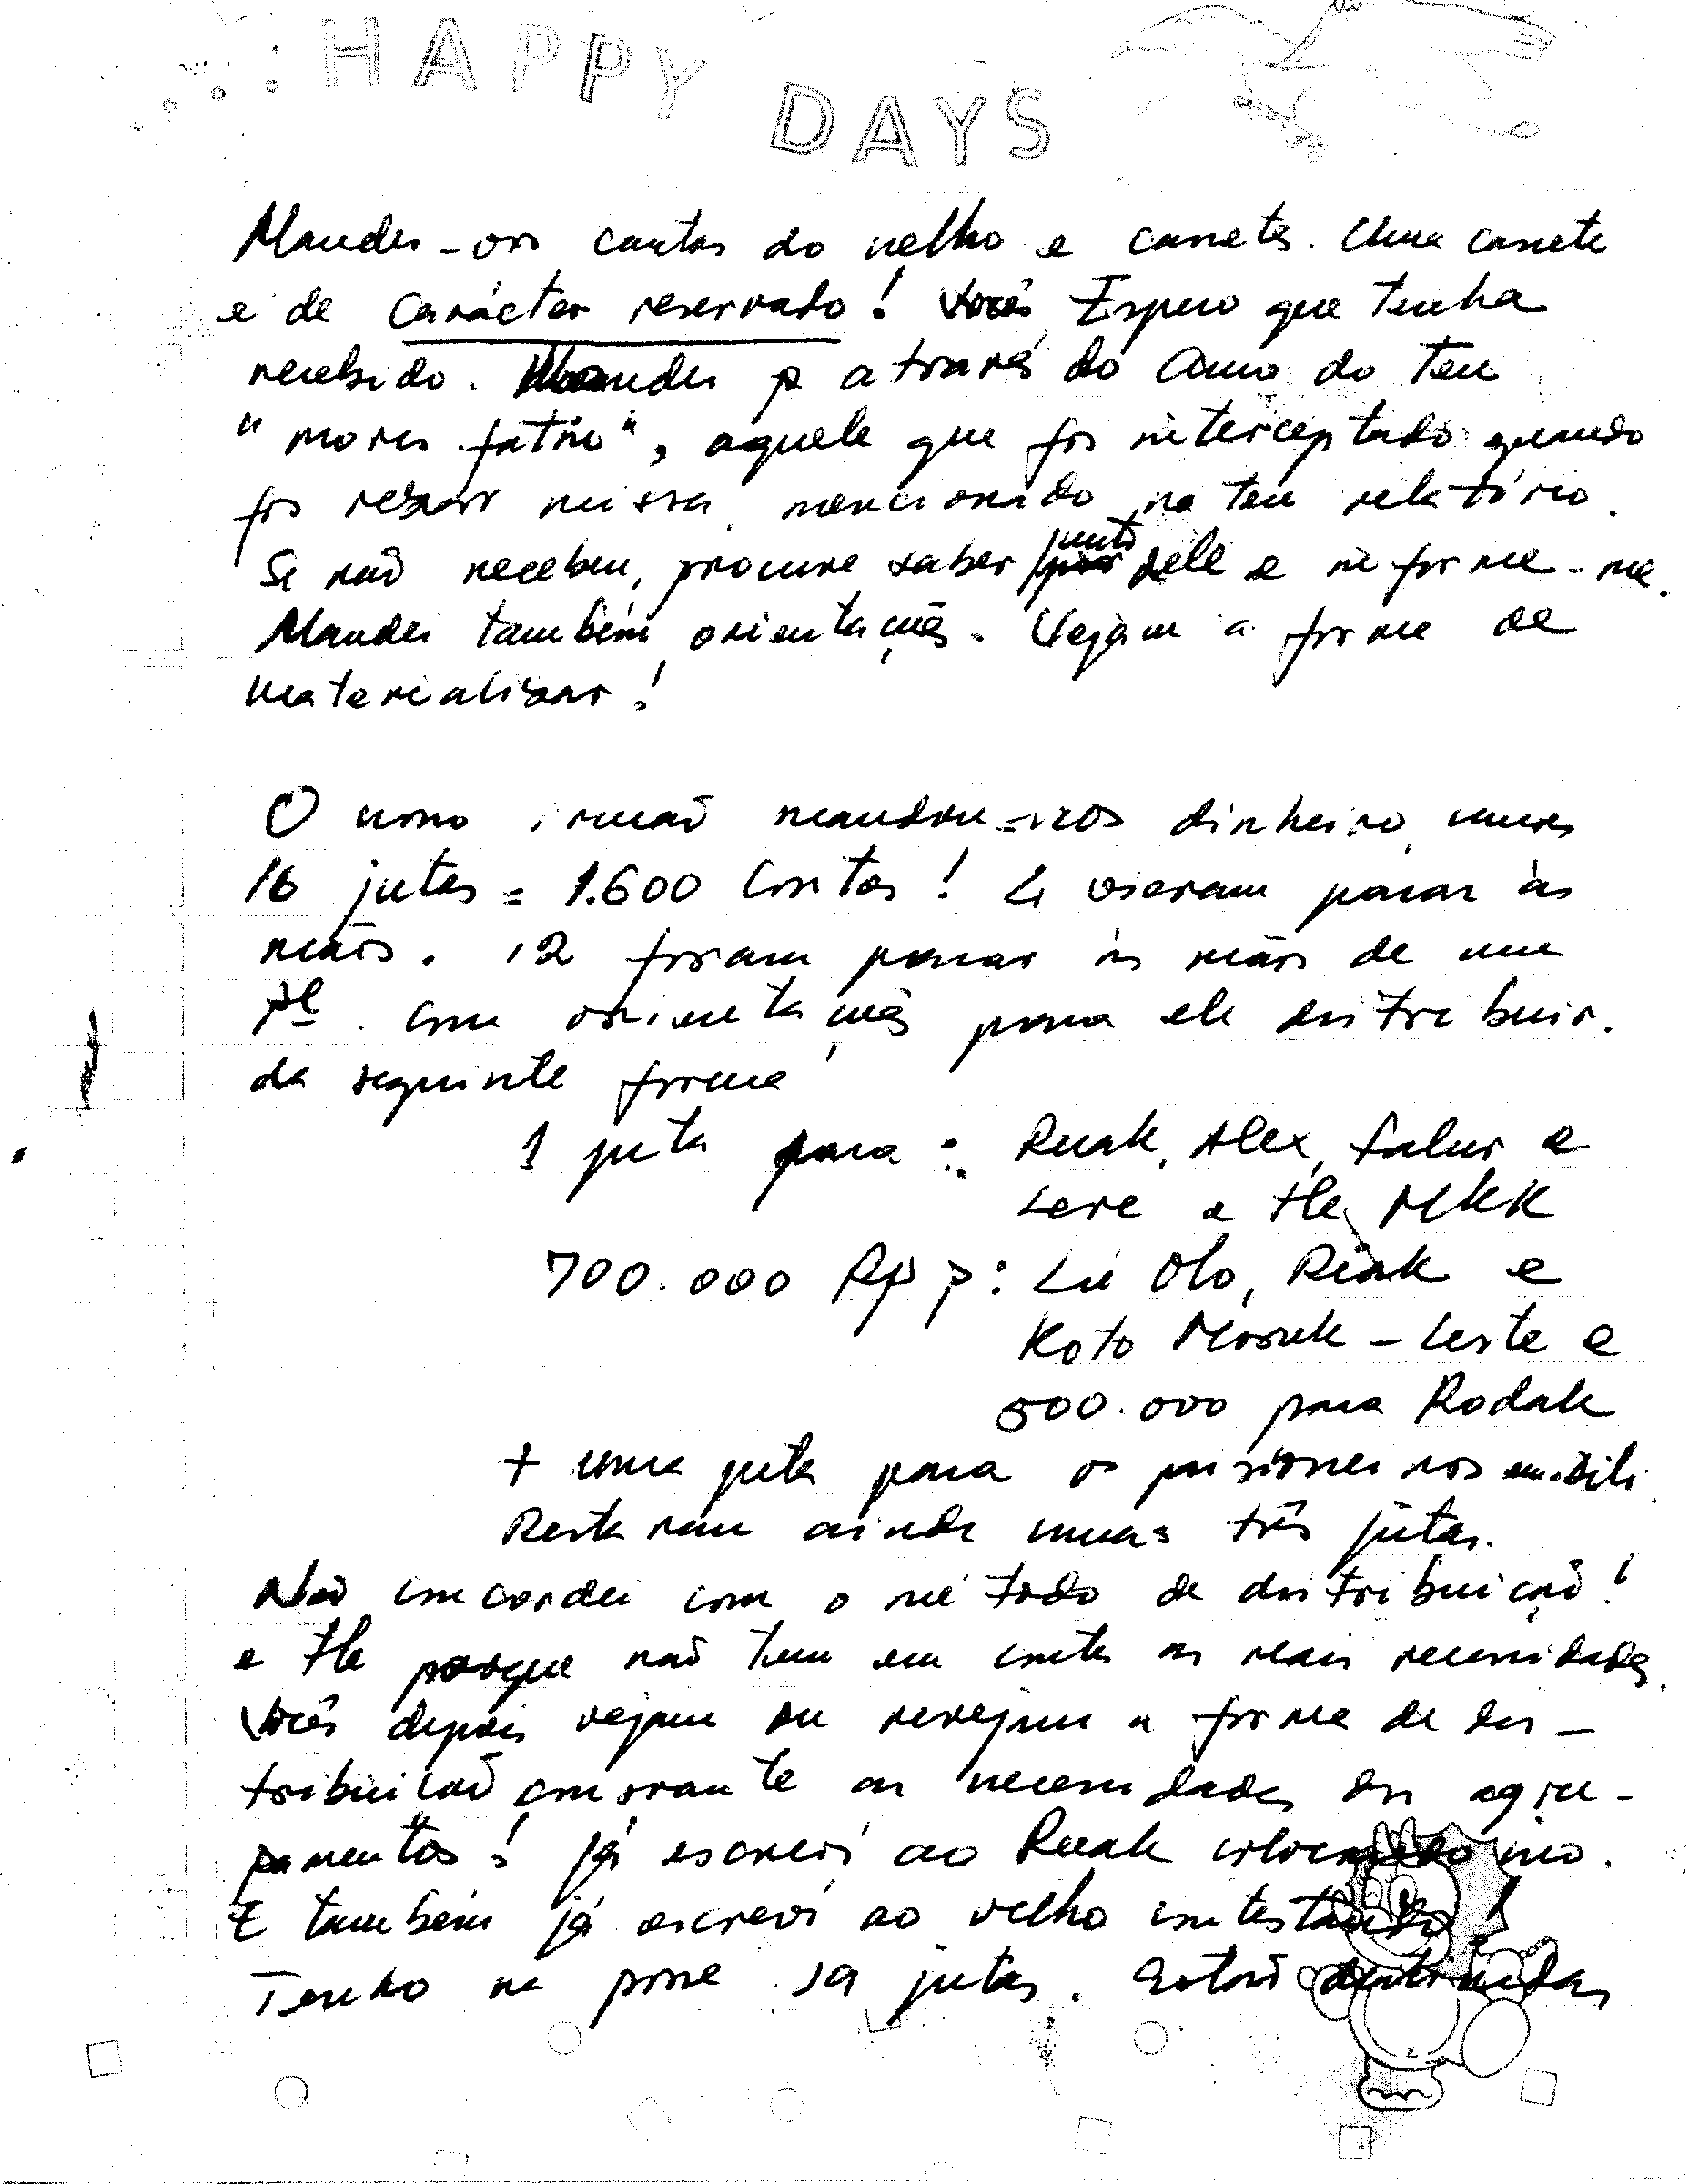 HAPPY DAYS
Mandei-vos cartas do velho e cassetes. Uma cassete
e de carácter reservado! Vocês Espero que tenha
recebido. Mandei p através do Amo do teu
" mores fatin", aquele que foi interceptado quando
foi rezar missa, mencionado no teu relatório.
Se não recebeu, procure saber junto dele e informe-me.
Mandei também orientações. Vejam a forma de
materializar!
O nosso irmão mandou-nos dinheiro, umas
16 jutas = 1.600 Contos! 4 vieram parar às
mãos. 12 foram parar às mãos de um
Pe. com orientações para ele distribuir.
da seguinte forma
1 juta para: Ruak, Alex, Falur e
Lere a Hle MKK
700.000 Rp p: Lu Olo, Riak e
Koto Mossuk - Leste e
500.000 para Rodak
+ uma juta para os prisioneiros em Dili.
Restaram ainda umas três jutas.
Não concordei com o método de distribuição!
e Hle porque não tem em conta as reais necessidades.
Vocês depois vejam ou revejam a forma de dis-
tribuição consoante as necessidades dos agru-
pamentos! Já escrevi ao Ruak colocando isso.
E também já escrevi ao velho contestando!
Tenho na posse 19 jutas. Estão destinadas